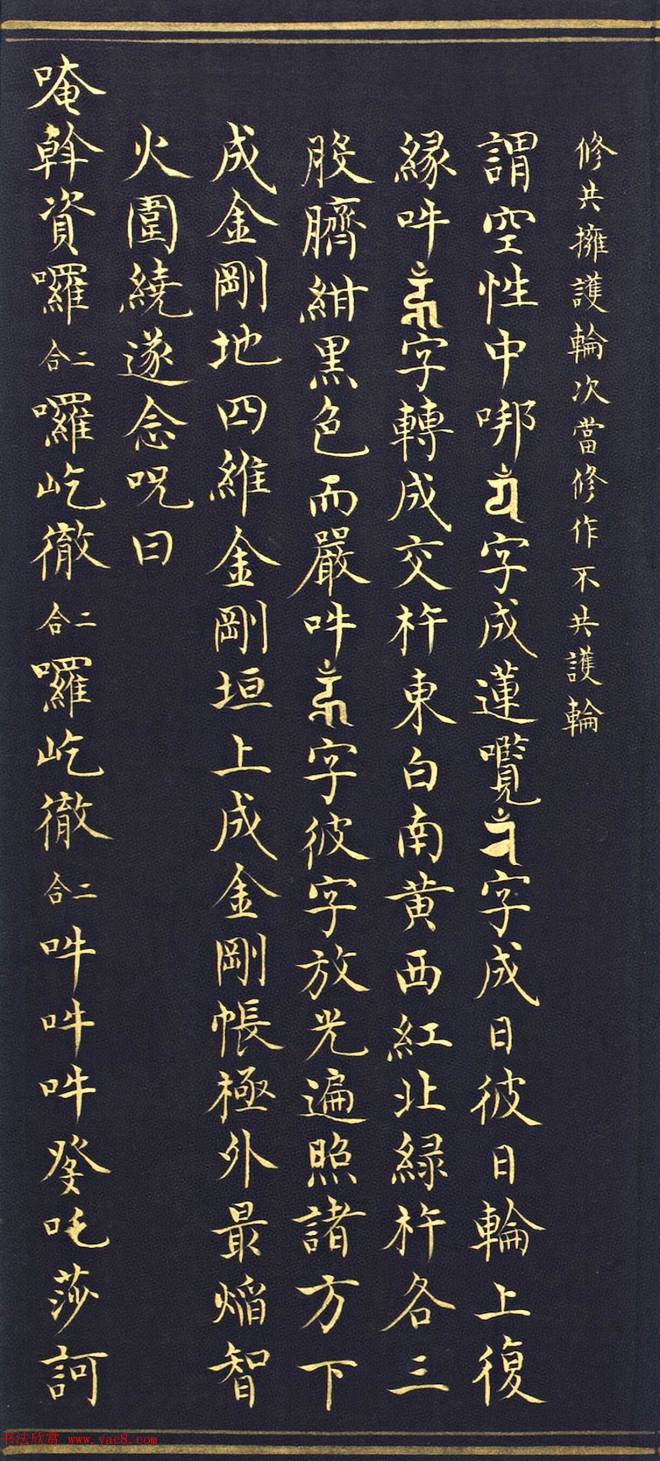 修共擁護輪次當修作不共護輪
謂空性中𠳐字成蓮囕字成日彼日輪上復
縁吽字轉成交杵東白南黄西紅北緑杵各三
股臍紺黑色而嚴吽字彼字放光遍照諸方下
成金剛地四維金剛垣上成金剛帳極外最焰智
火圍繞遂念呪曰
唵斡資囉二合囉屹徹二合囉屹徹二合吽吽吽癹吒莎訶
书法欣赏 www.yac8.com